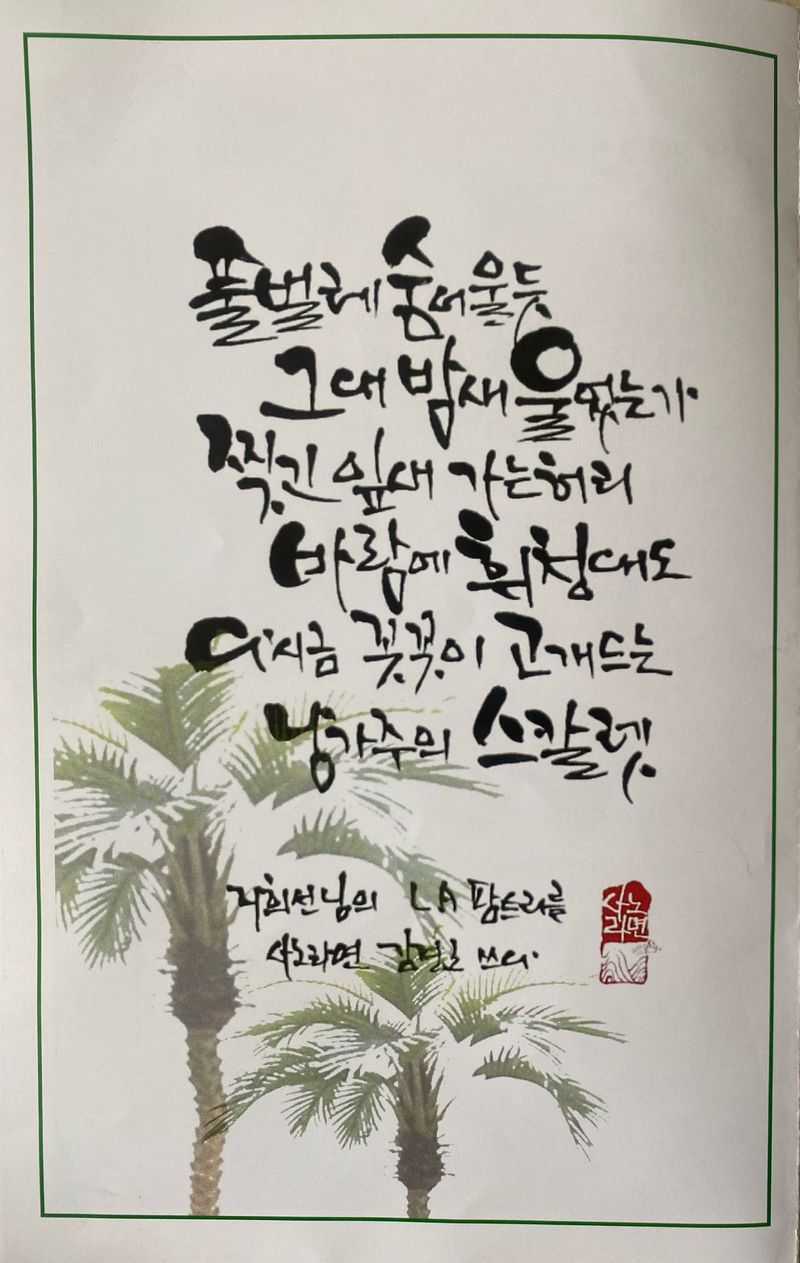 풀벌레 숨어 울듯
그대 밤새 울었는가
찢긴 잎새 가는허리
바람에 휘청대도
다시금 꼿꼿이 고개드는
남가주의 스칼렛
지희선님의 LA 팜트리를
사노라면 쓰다.
사노
라면